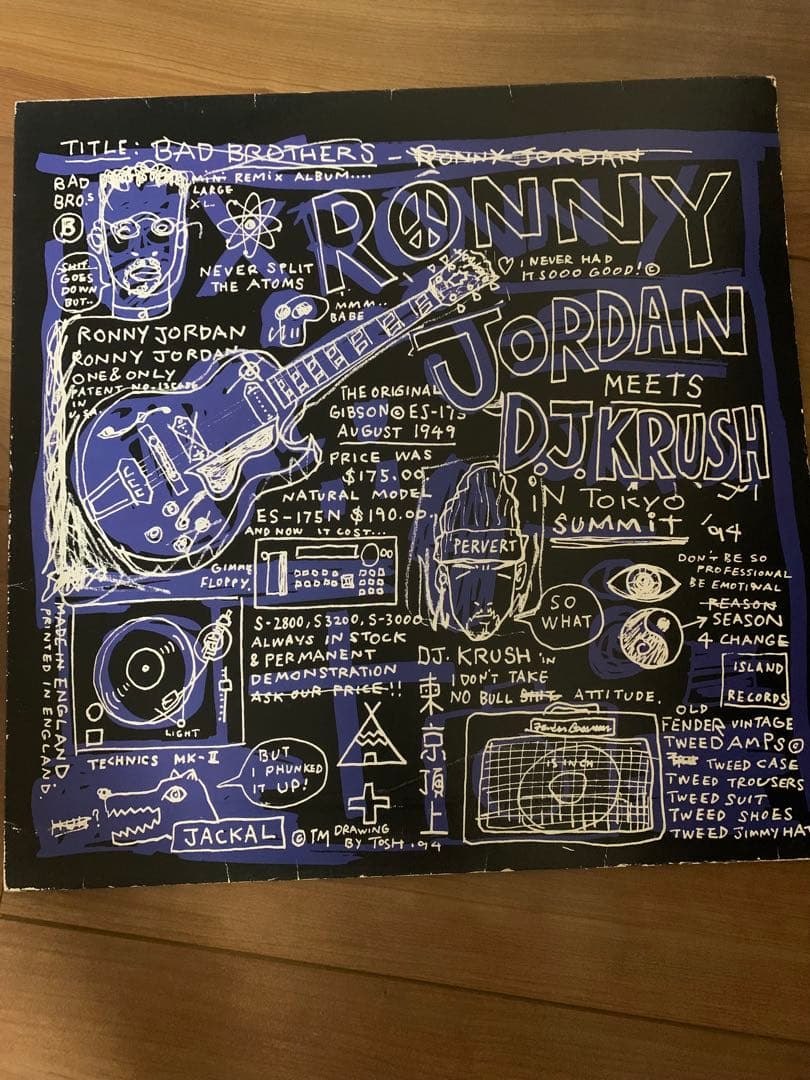 TITLE: BAD BROTHERS - RONNY JORDAN
BAD
BRO.S
B
MINI REMIX ALBUM....
LARGE
XL
SHIT
GOES
DOWN
BUT..
NEVER SPLIT
THE ATOMS
RONNY
♡ I NEVER HAD
IT SOOO GOOD!©
MMM..
BABE
JORDAN
MEETS
D.J.KRUSH
IN TOKYO
SUMMIT '94
RONNY JORDAN
RONNY JORDAN
ONE & ONLY
PATENT NO.
IN
U.S.A.
THE ORIGINAL
GIBSON © ES-175
AUGUST 1949
PRICE WAS
$175.00
NATURAL MODEL
ES-175N $190.00.
AND NOW IT COST...
GIMME
FLOPPY.
PERVERT
SO
WHAT
DON'T BE SO
PROFESSIONAL
BE EMOTIONAL
REASON
→ SEASON
4 CHANGE
ISLAND
RECORDS
S-2800, S3200, S-3000
ALWAYS IN STOCK
& PERMANENT
DEMONSTRATION
ASK OUR PRICE!!
DJ. KRUSH in
I DON'T TAKE
NO BULL SHIT ATTITUDE.
東京
MADE IN ENGLAND
PRINTED IN ENGLAND.
LIGHT
TECHNICS MK-II
BUT
I PHUNKED
IT UP!
JACKAL
© TM DRAWING
BY TOSH. 94
15 INCH
OLD
FENDER VINTAGE
TWEED AMPS ©
TWEED CASE
TWEED TROUSERS
TWEED SUIT
TWEED SHOES
TWEED JIMMY HAT